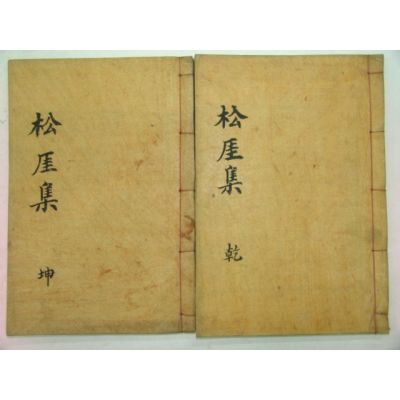 松厓集 乾
松厓集 坤